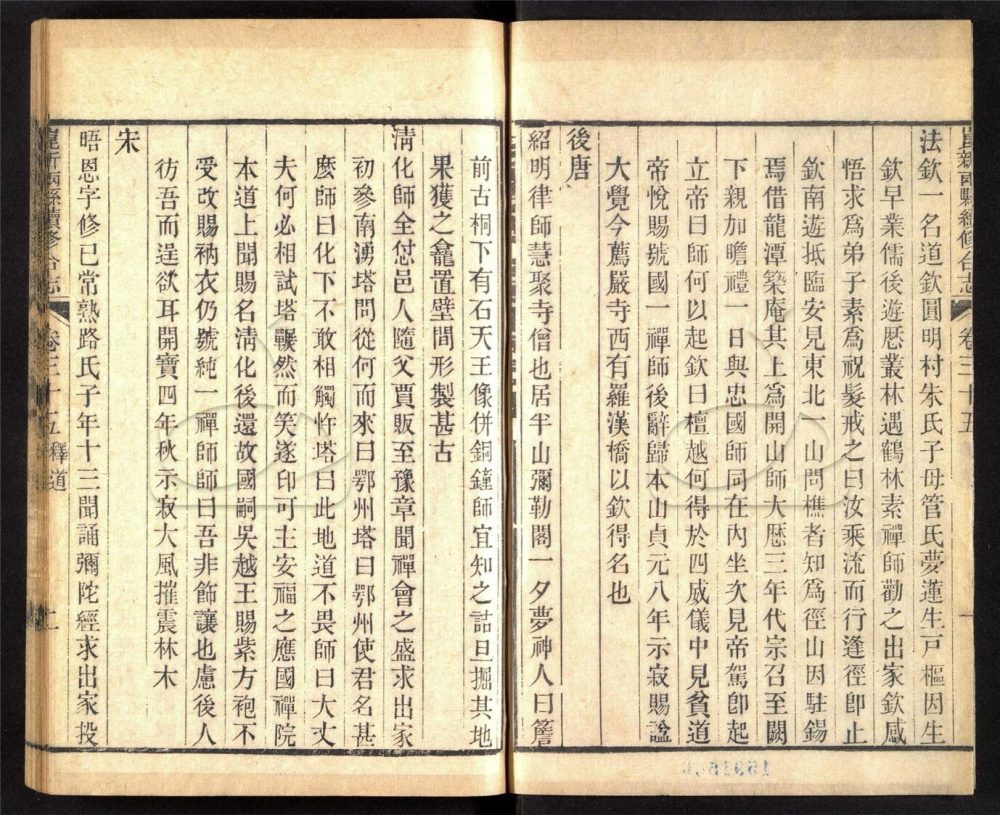 崑新兩縣續修合志 卷三十五
法欽一名道欽圓明村朱氏子母管氏夢蓮生戶樞因生
欽早業儒後遊歷叢林遇鶴林素禪師勸之出家欽感
悟求爲弟子素爲祝髮戒之曰汝乘流而行逢徑卽止
欽南遊抵臨安見東北一山問樵者知爲徑山因駐錫
焉借龍潭築庵其上爲開山師大歷三年代宗召至闕
下親加瞻禮一日與忠國師同在內坐次見帝駕卽起
立帝曰師何以起欽曰檀越何得於四威儀中見貧道
帝悅賜號國一禪師後辭歸本山貞元八年示寂賜諡
大覺今薦嚴寺西有羅漢橋以欽得名也
後唐
紹明律師慧聚寺僧也居半山彌勒閣一夕夢神人曰簷
前古桐下有石天王像併銅鐘師宜知之詰旦掘其地
果獲之龕置壁間形製甚古
淸化師全怤邑人隨父賈販至豫章聞禪會之盛求出家
初參南湧塔問從何而來曰鄂州塔曰鄂州使君名甚
麼師曰化下不敢相觸忤塔曰此地道不畏師曰大丈
夫何必相試塔囅然而笑遂印可主安福之應國禪院
本道上聞賜名淸化後還故國嗣吳越王賜紫方袍不
受改賜衲衣仍號純一禪師師曰吾非飾讓也慮後人
彷吾而逞欲耳開寶四年秋示寂大風摧震林木
宋
晤恩字修已常熟路氏子年十三聞誦彌陀經求出家投
崑新兩縣續修合志 卷三十五 釋道